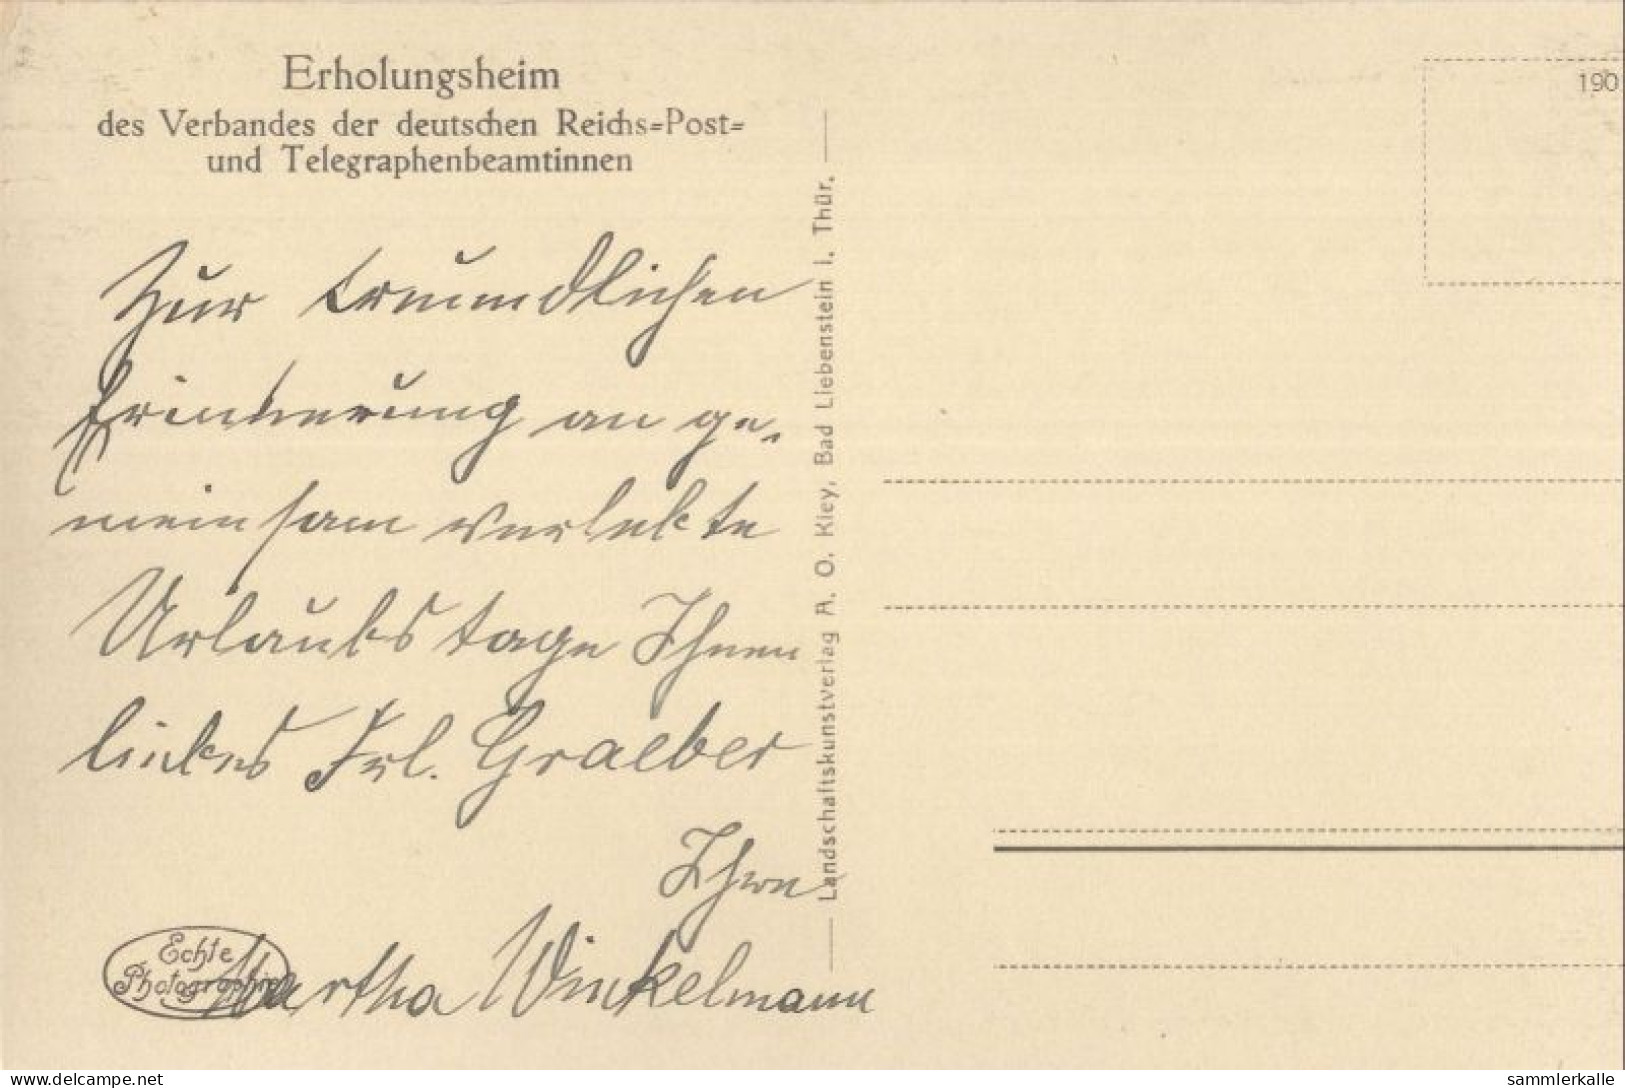 Erholungsheim
des Verbandes der deutschen Reichs-Post-
und Telegraphenbeamtinnen
190
Zur freundlichen
Erinnerung an ge-
meinsam verlebte
Urlaubstage Ihnen
liebes Frl. Graeber
Ihre
Martha Winkelmann
Landschaftskunstverlag A. O. Kley, Bad Liebenstein i. Thür.
Echte
Photographie
www.delcampe.net
sammlerkalle